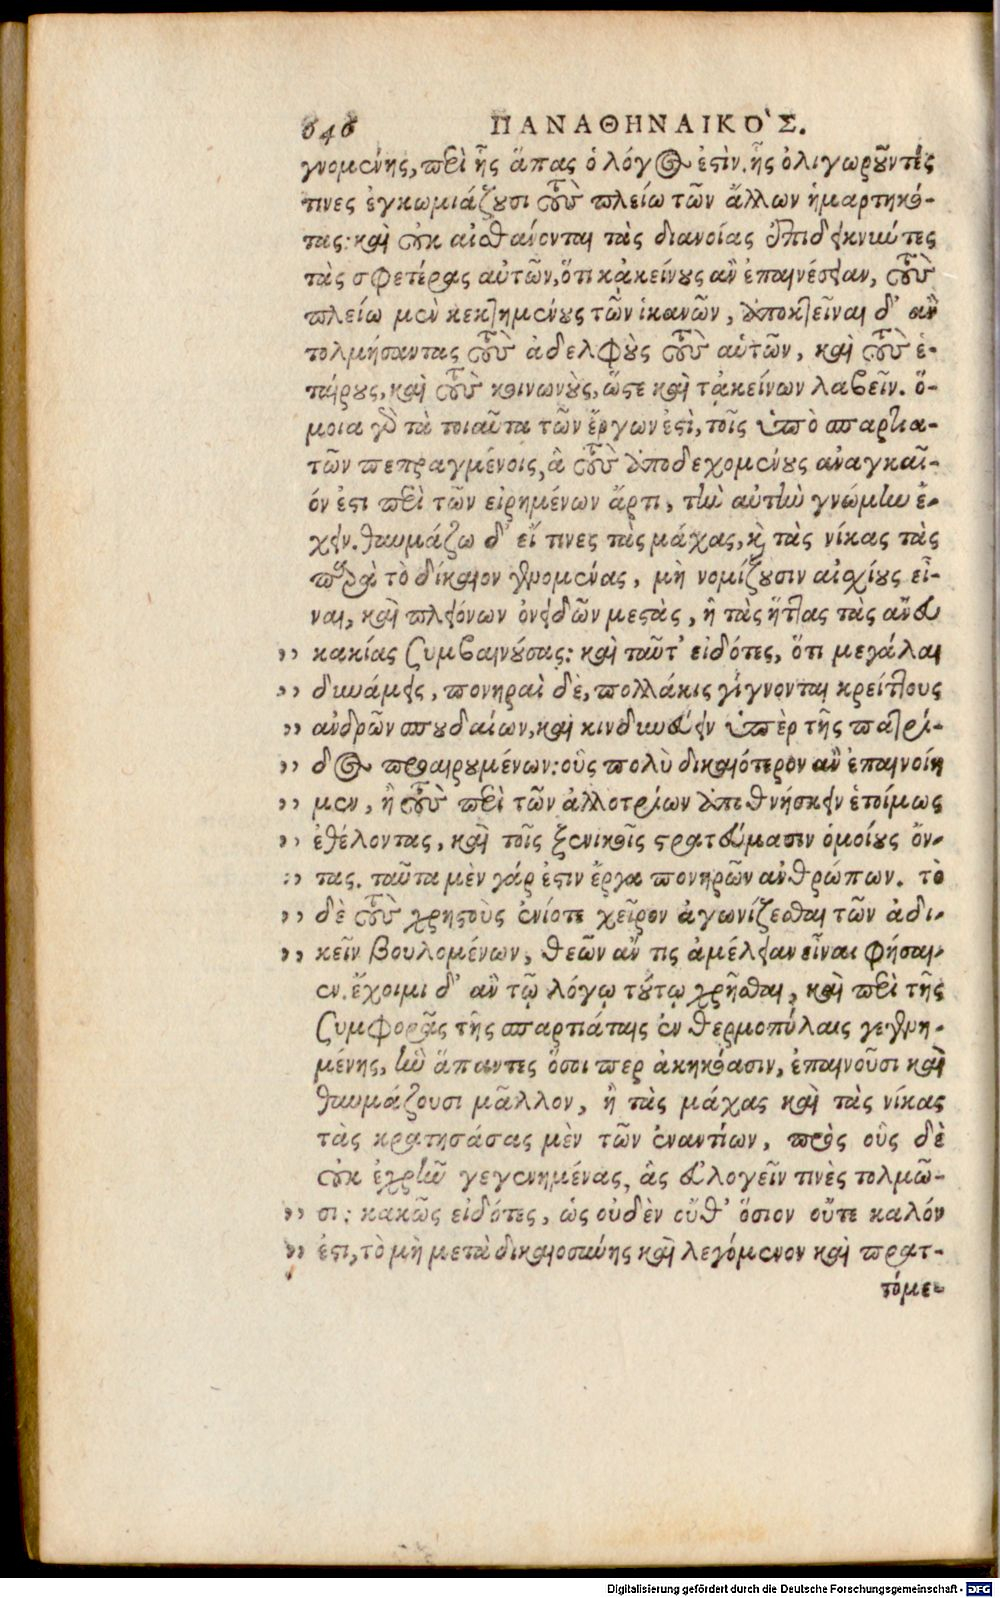 646 ΠΑΝΑΘΗΝΑΙΚΟ῾Σ.
γνομένης, περὶ ἧς ἅπας ὁ λόγος ἐστὶν. ἧς ὀλιγωροῦντές
τινες ἐγκωμιάζουσι τοὺς πλείω τῶν ἄλλων ἡμαρτηκό-
τας: καὶ οὐκ αἰσθάνονται τὰς διανοίας ἐπιδεικνύντες
τὰς σφετέρας αὐτῶν, ὅτι κᾀκείνους ἂν ἐπαινέσειαν, τοὺς
πλείω μὲν κεκτημένους τῶν ἱκανῶν, ἀποκτεῖναι δ' ἂν
τολμήσαντας τοὺς ἀδελφοὺς τοὺς αὑτῶν, καὶ τοὺς ἑ-
ταίρους, καὶ τοὺς κοινωνοὺς, ὥστε καὶ τᾀκείνων λαβεῖν. ὅ-
μοια γὰρ τὰ τοιαῦτα τῶν ἔργων ἐστὶ, τοῖς ὑπὸ σπαρτια-
τῶν πεπραγμένοις, ἃ τοὺς ἀποδεχομένους ἀναγκαῖ-
όν ἐστι περὶ τῶν εἰρημένων ἄρτι, τὴν αὐτὴν γνώμην ἔ-
χειν. θαυμάζω δ' εἴ τινες τὰς μάχας, καὶ τὰς νίκας τὰς
παρὰ τὸ δίκαιον γενομένας, μὴ νομίζουσιν αἰσχίους εἶ-
ναι, καὶ πλειόνων ὀνειδῶν μεστὰς, ἢ τὰς ἥττας τὰς ἄνευ
„ κακίας συμβαινούσας: καὶ ταῦτ' εἰδότες, ὅτι μεγάλαι
„ δυνάμεις, πονηραὶ δὲ, πολλάκις γίγνονται κρείττους
„ ἀνδρῶν σπουδαίων, καὶ κινδυνεύειν ὑπὲρ τῆς πατρί-
„ δος προαιρουμένων: οὓς πολὺ δικαιότερον ἂν ἐπαινοίη
„ μεν, ἢ τοὺς περὶ τῶν ἀλλοτρίων ἀποθνήσκειν ἑτοίμως
„ ἐθέλοντας, καὶ τοῖς ξενικοῖς στρατεύμασιν ὁμοίους ὄν-
„ τας. ταῦτα μὲν γάρ ἐστιν ἔργα πονηρῶν ἀνθρώπων. τὸ
„ δὲ τοὺς χρηστοὺς ἐνίοτε χεῖρον ἀγωνίζεσθαι τῶν ἀδι-
„ κεῖν βουλομένων, θεῶν ἄν τις ἀμέλειαν εἶναι φήσαι-
εν. ἔχοιμι δ' ἂν τῷ λόγῳ τούτῳ χρῆσθαι, καὶ περὶ τῆς
συμφορᾶς τῆς σπαρτιάταις ἐν θερμοπύλαις γεγενη-
μένης, ἣν ἅπαντες ὅσοι περ ἀκηκόασιν, ἐπαινοῦσι καὶ
θαυμάζουσι μᾶλλον, ἢ τὰς μάχας καὶ τὰς νίκας
τὰς κρατησάσας μὲν τῶν ἐναντίων, πρὸς οὓς δὲ
οὐκ ἐχρῆν γεγενημένας, ἃς εὐλογεῖν τινὲς τολμῶ-
„ σι: κακῶς εἰδότες, ὡς οὐδὲν οὔθ' ὅσιον οὔτε καλόν
„ ἐστι, τὸ μὴ μετὰ δικαιοσύνης καὶ λεγόμενον καὶ πρατ-
τόμε-
Digitalisierung gefördert durch die Deutsche Forschungsgemeinschaft - DFG